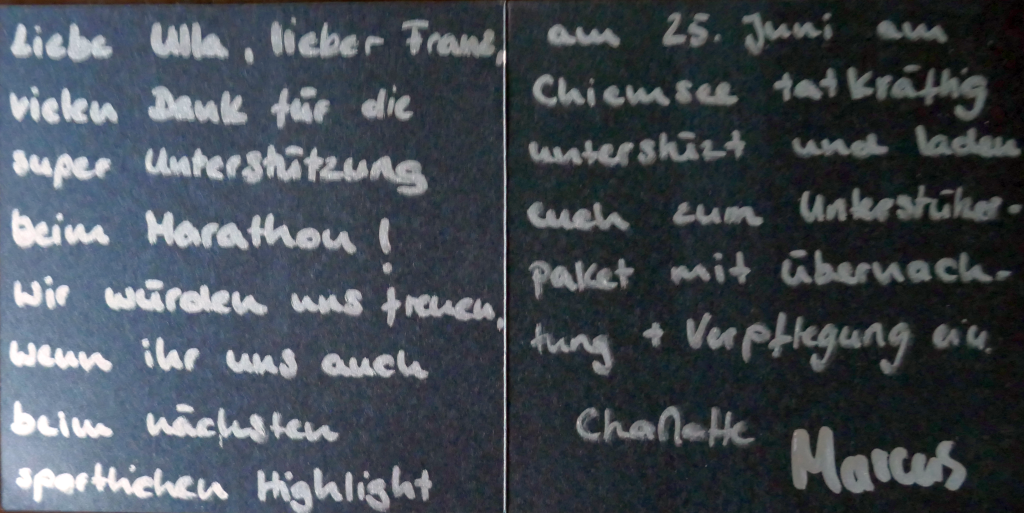 Liebe Ulla, lieber Franz,
vielen Dank für die
super Unterstützung
beim Marathon!
Wir würden uns freuen,
wenn ihr uns auch
beim nächsten
sportlichen Highlight
am 25. Juni am
Chiemsee tatkräftig
unterstützt und laden
euch zum Unterstützer-
paket mit Übernach-
tung + Verpflegung ein.
Charlotte
Marcus